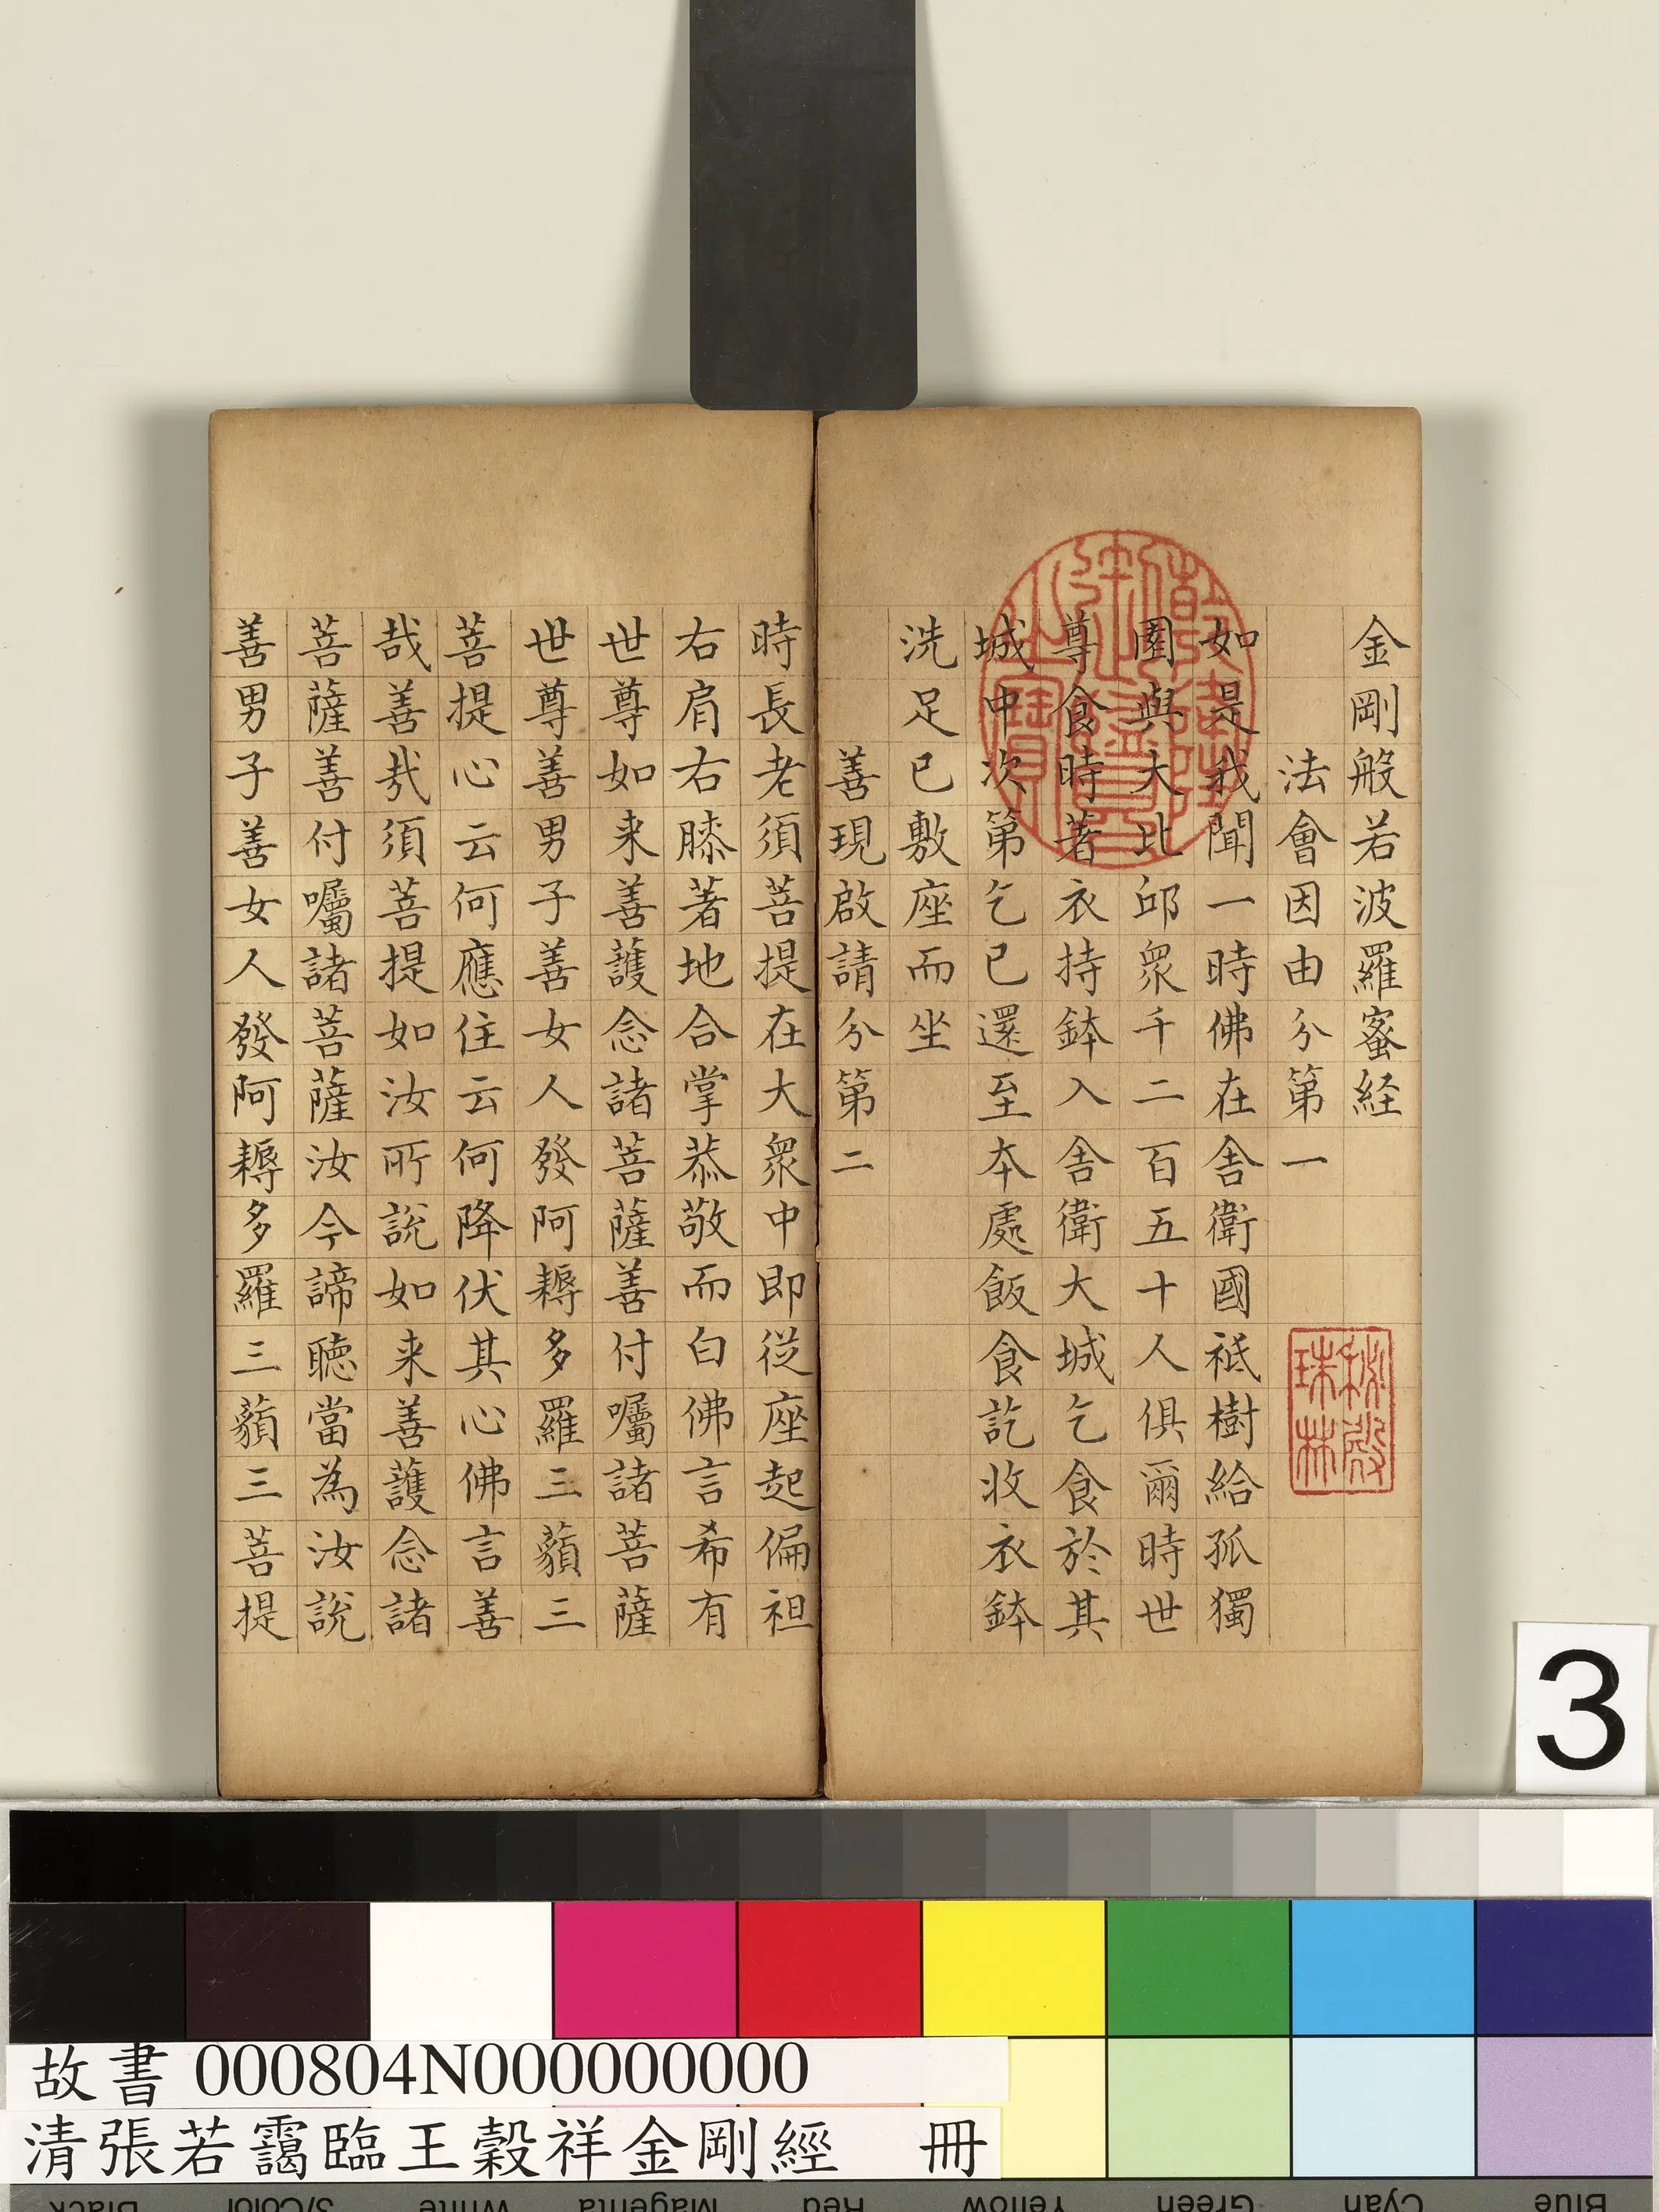 金剛般若波羅蜜経
法會因由分第一
如是我聞一時佛在舍衛國祗樹給孤獨
園與大比邱衆千二百五十人俱爾時世
尊食時著衣持鉢入舍衛大城乞食於其
城中次第乞已還至本處飯食訖收衣鉢
洗足已敷座而坐
善現啟請分第二
時長老須菩提在大衆中即從座起偏袒
右肩右膝著地合掌恭敬而白佛言希有
世尊如来善護念諸菩薩善付囑諸菩薩
世尊善男子善女人發阿耨多羅三藐三
菩提心云何應住云何降伏其心佛言善
哉善哉須菩提如汝所說如来善護念諸
菩薩善付囑諸菩薩汝今諦聽當為汝說
善男子善女人發阿耨多羅三藐三菩提
乾隆御覽之寶
秘殿珠林
3
故書 000804N000000000
清張若靄臨王穀祥金剛經 冊
Black
3/Color
White
Magenta
Red
Yellow
Green
Cyan
Blue